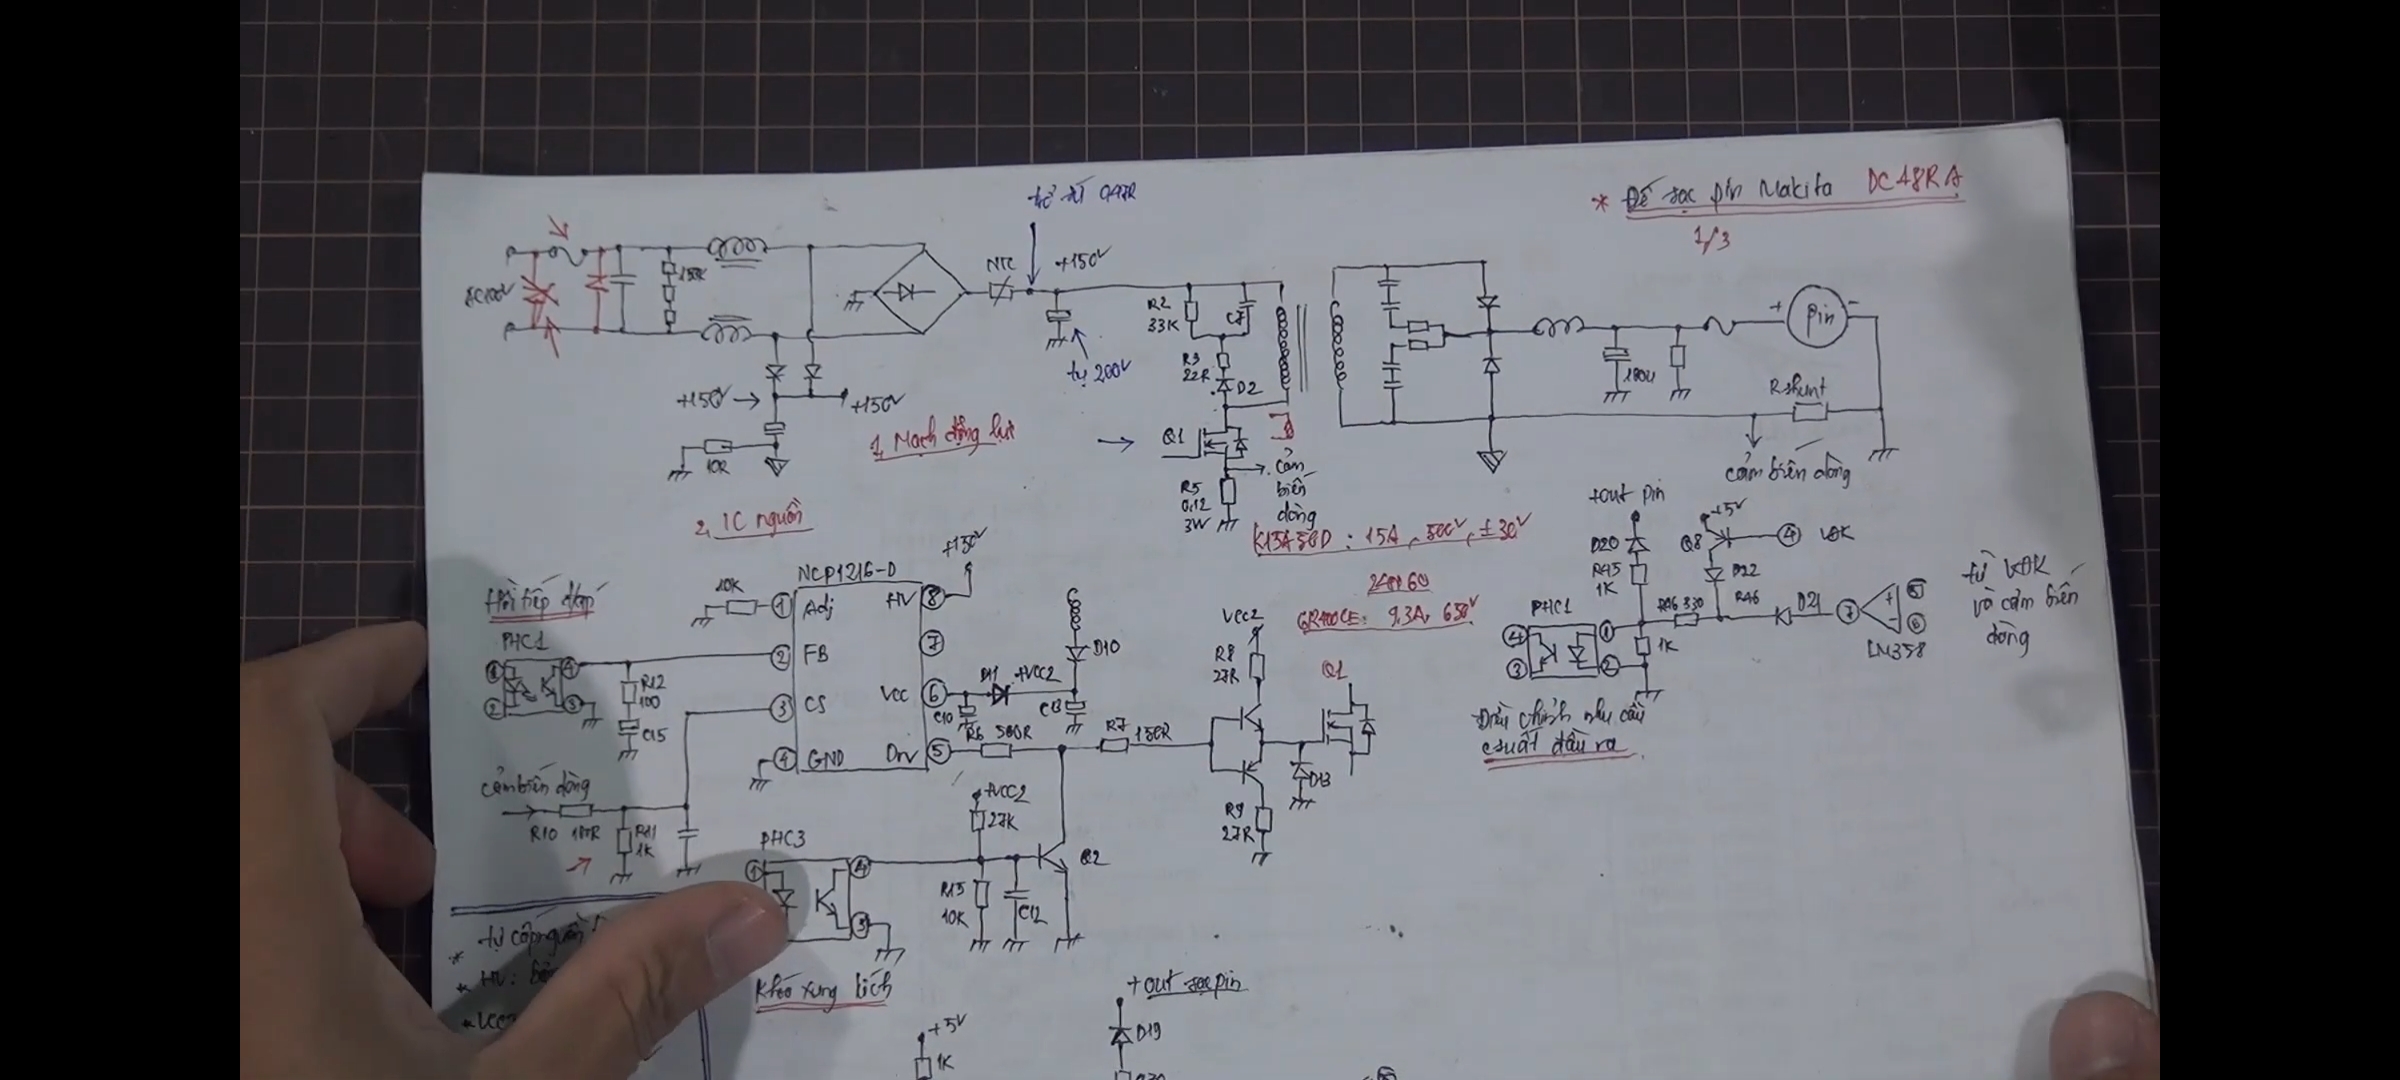 * Đế sạc pin Makita DC18RA
1/3
+150V
NTC
+150V
tụ 200V
150K
R2
33K
C7
R3
22R
D2
Q1
R5
0,12
3W
cảm
biến
dòng
+ pin -
180u
Rshunt
cảm biến dòng
+150V
+150V
10R
1, Mạch động lực
K15A50D : 15A, 500V, ±30V
GR400CE: 9.3A, 650V
2, IC nguồn
Hồi tiếp điện áp
PHC1
1
4
2
3
R12
100
C15
10K
NCP1216-D
1 Adj
2 FB
3 CS
4 GND
HV 8
7
Vcc 6
Drv 5
+150V
D11
+VCC2
D10
C10
C13
R6 560R
R7 150R
VCC2
R8
27R
R9
27R
Q1
D13
cảm biến dòng
R10 180R
R11
1K
PHC3
1
4
3
+VCC2
27K
R15
10K
C12
Q2
Khóa xung kích
+out pin
D20
R45
1K
+5V
Q8
4 VĐK
D22
R46 330
R46
D21
7
5
6
LM358
PHC1
4
3
1
2
1K
từ VĐK
và cảm biến
dòng
Điều chỉnh nhu cầu
csuất đầu ra
* tự cấp nguồn
* HV:
+5V
1K
+out sạc pin
D19